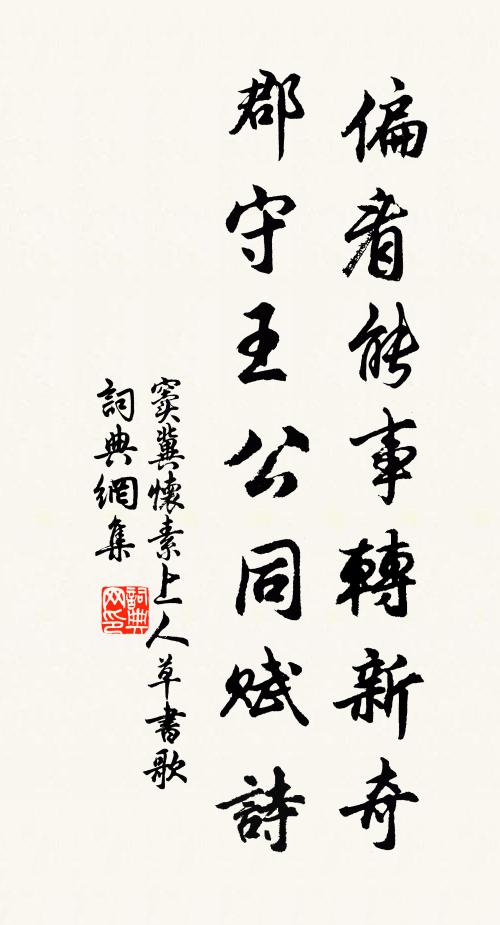 偏看能事轉新奇
郡守王公同賦詩
竇冀懷素上人草書歌
詞典網集
詞典
网印